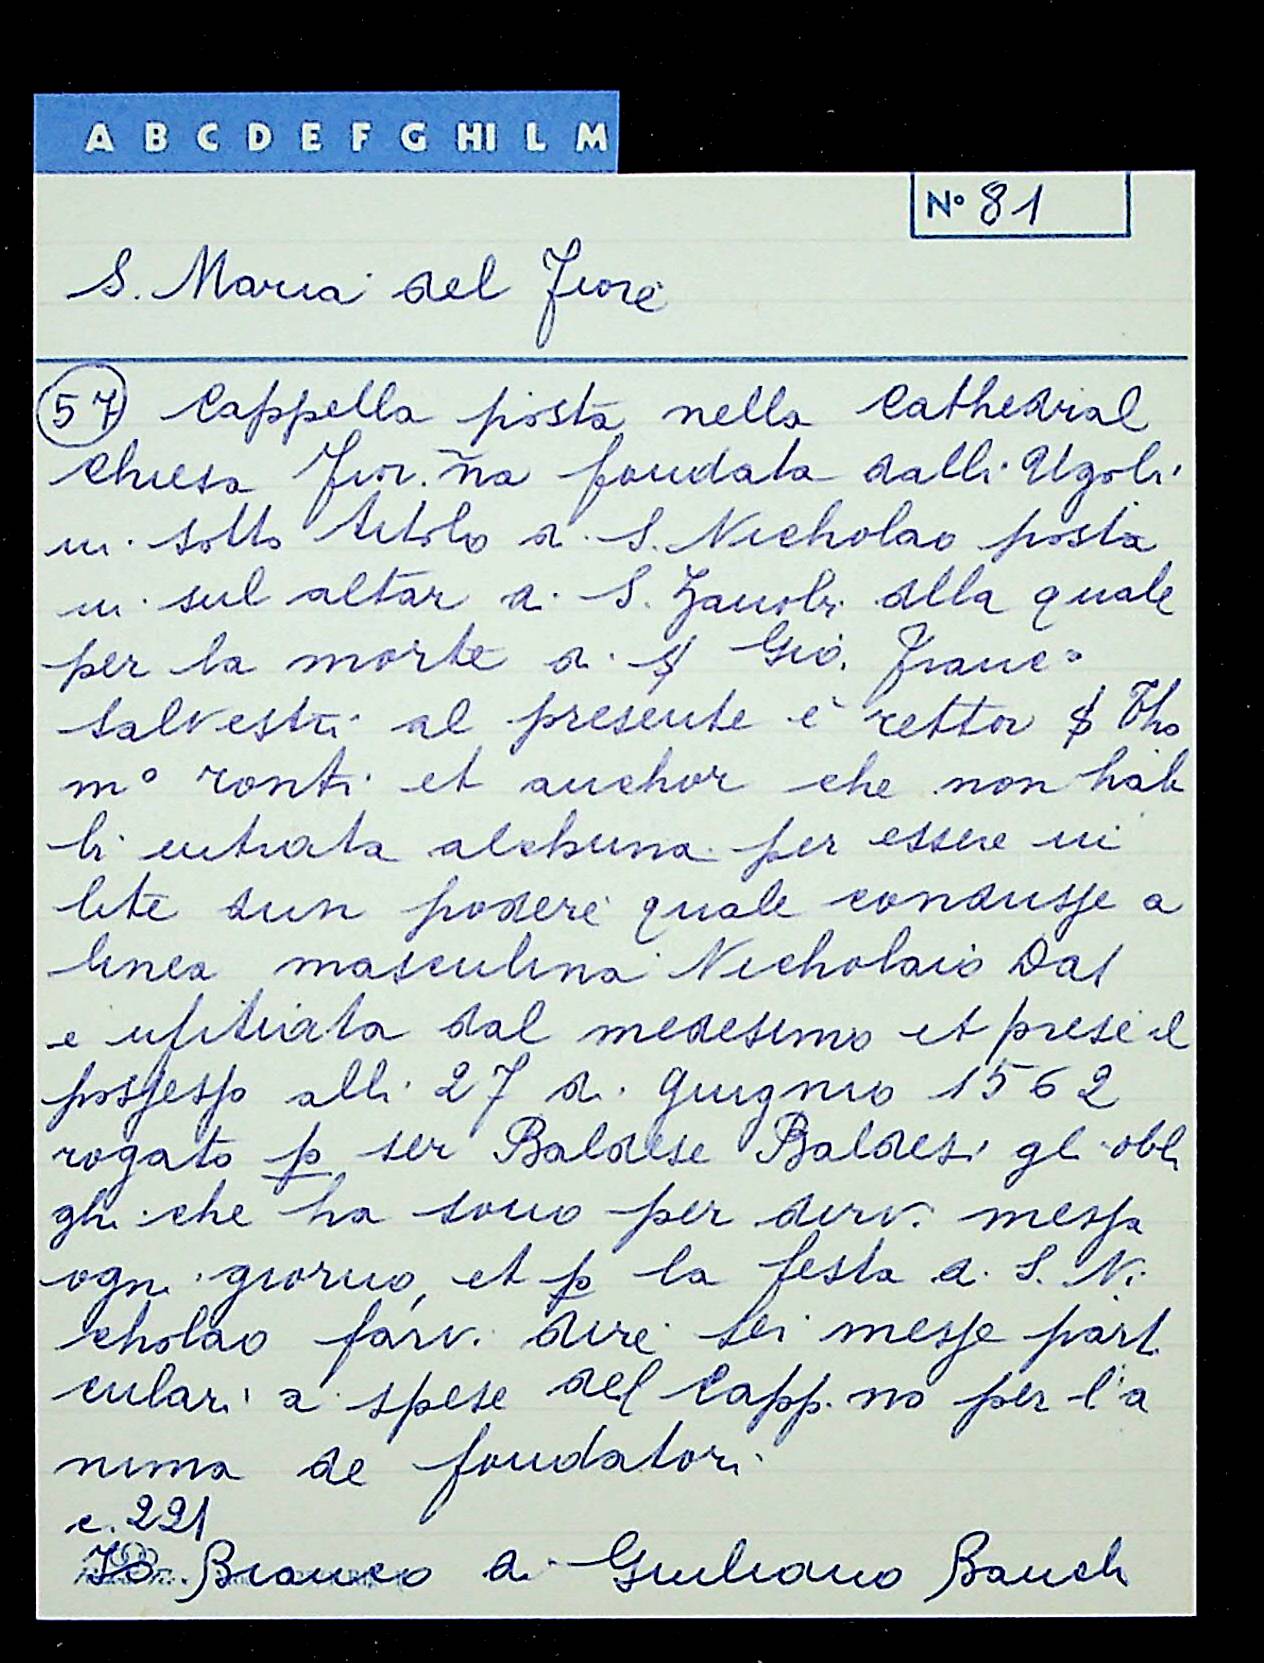 A B C D E F G HI L M
N° 81
S. Maria del Fiore
57 Cappella posta nella Cathedrial
chiesa Fior.na fondata dalli Ugoli
ni sotto titolo di S. Nicholao posta
in sul altar di S. Zanobi alla quale
per la morte di $ Giò. Franc°
salvestri al presente è rettor $ Tho
m° ronti et anchor che non hab
bi entrata alchuna per essere in
lite d'un podere quale condusse a
linea masculina Nicholaio Dal
e ufitiata dal medesimo et prese il
possesso alli 27 di giugnio 1562
rogato p ser Baldese Baldesi gli obli
ghi che ha sono per dirv. messa
ogni giorno, et p la festa di S. Ni
cholao farv. dire sei messe parti
culari a spese del Capp.no per l'a
nima de fondatori
c. 221
Io Bianco di Giuliano Banch